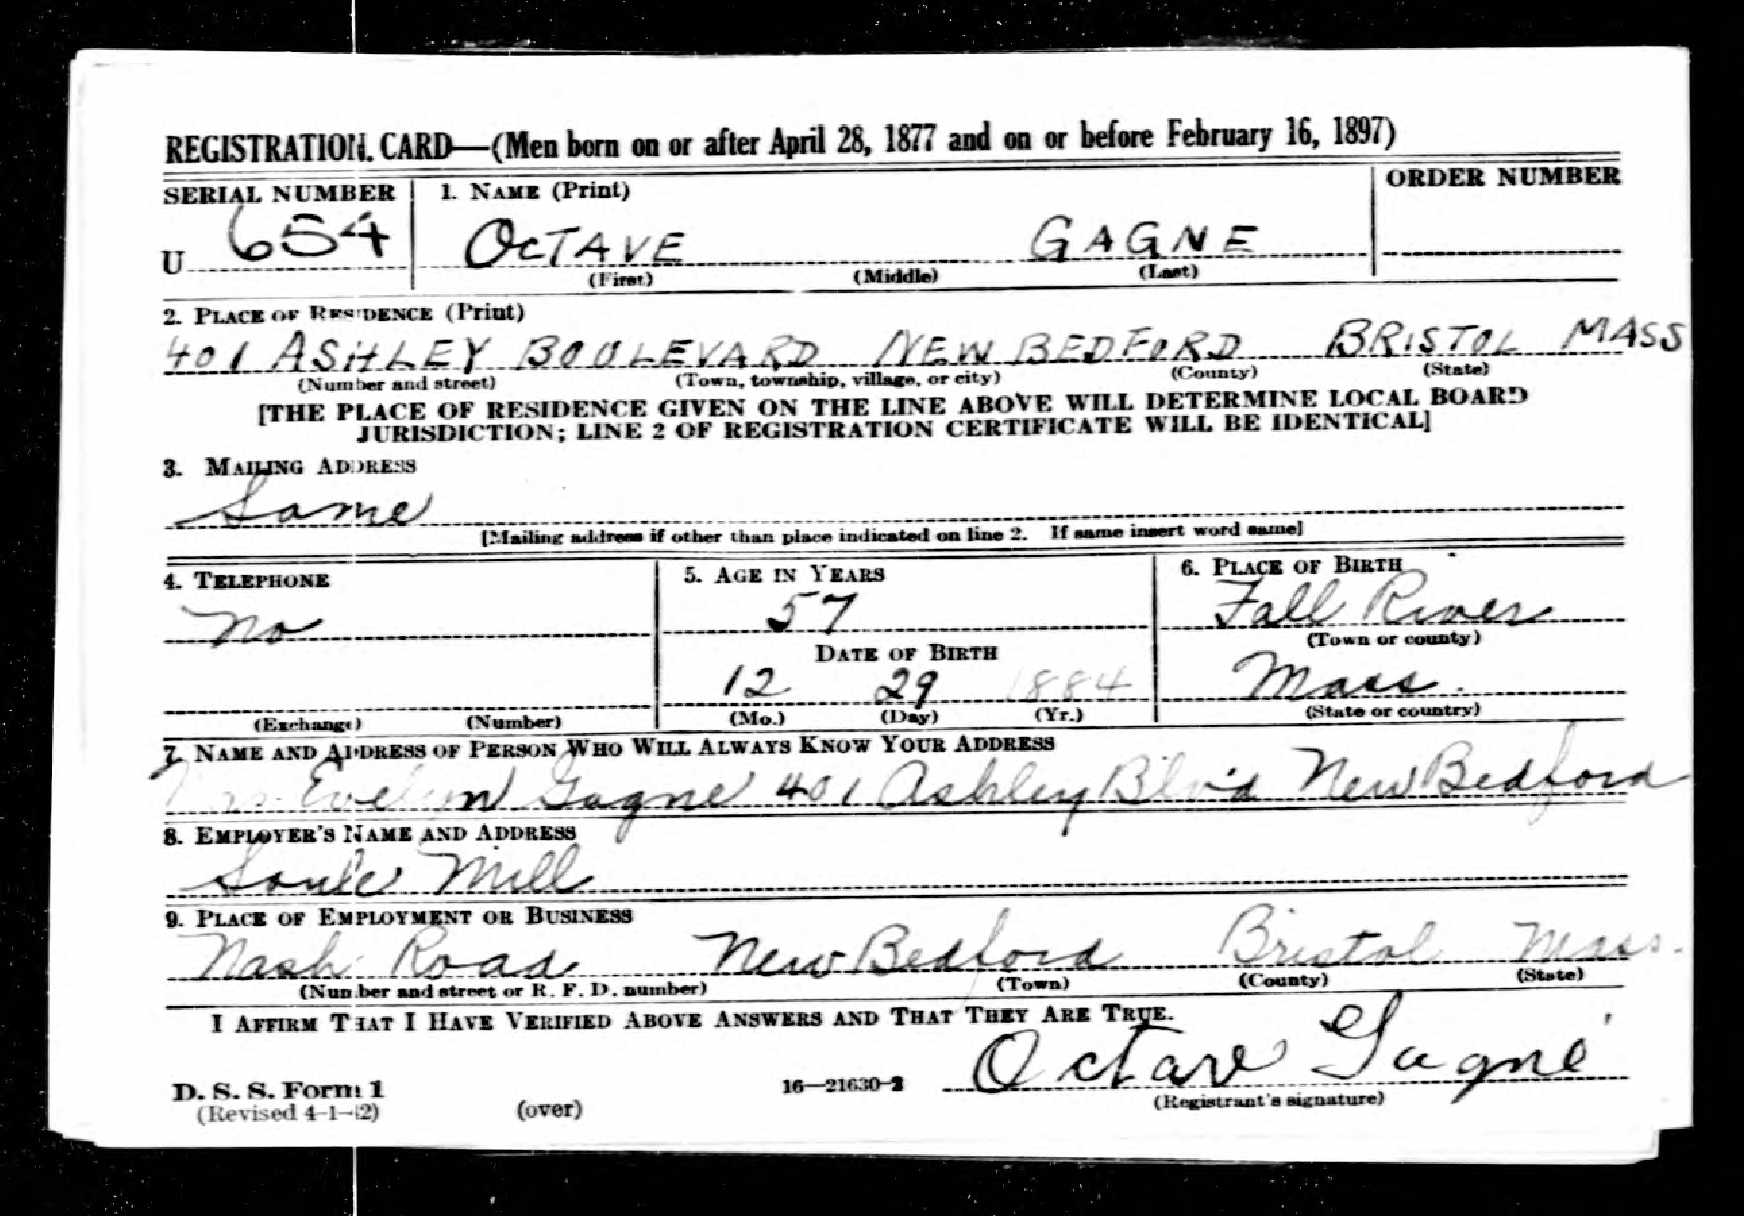 REGISTRATION CARD—(Men born on or after April 28, 1877 and on or before February 16, 1897)
SERIAL NUMBER 1. NAME (Print) ORDER NUMBER
U 654 OCTAVE GAGNE
(First) (Middle) (Last)
2. PLACE OF RESIDENCE (Print)
401 ASHLEY BOULEVARD NEW BEDFORD BRISTOL MASS
(Number and street) (Town, township, village, or city) (County) (State)
[THE PLACE OF RESIDENCE GIVEN ON THE LINE ABOVE WILL DETERMINE LOCAL BOARD
JURISDICTION; LINE 2 OF REGISTRATION CERTIFICATE WILL BE IDENTICAL]
3. MAILING ADDRESS
Same
[Mailing address if other than place indicated on line 2. If same insert word same]
4. TELEPHONE 5. AGE IN YEARS 6. PLACE OF BIRTH
No 57 Fall River
(Town or county)
DATE OF BIRTH
12 29 1884 Mass.
(Exchange) (Number) (Mo.) (Day) (Yr.) (State or country)
7. NAME AND ADDRESS OF PERSON WHO WILL ALWAYS KNOW YOUR ADDRESS
Mrs. Evelyn Gagne 401 Ashley Blv'd New Bedford
8. EMPLOYER'S NAME AND ADDRESS
Soule Mill
9. PLACE OF EMPLOYMENT OR BUSINESS
Nash Road New Bedford Bristol Mass.
(Number and street or R. F. D. number) (Town) (County) (State)
I AFFIRM THAT I HAVE VERIFIED ABOVE ANSWERS AND THAT THEY ARE TRUE.
Octave Gagné
D. S. S. Form 1 16—21630-2
(Revised 4-1-42) (over) (Registrant's signature)